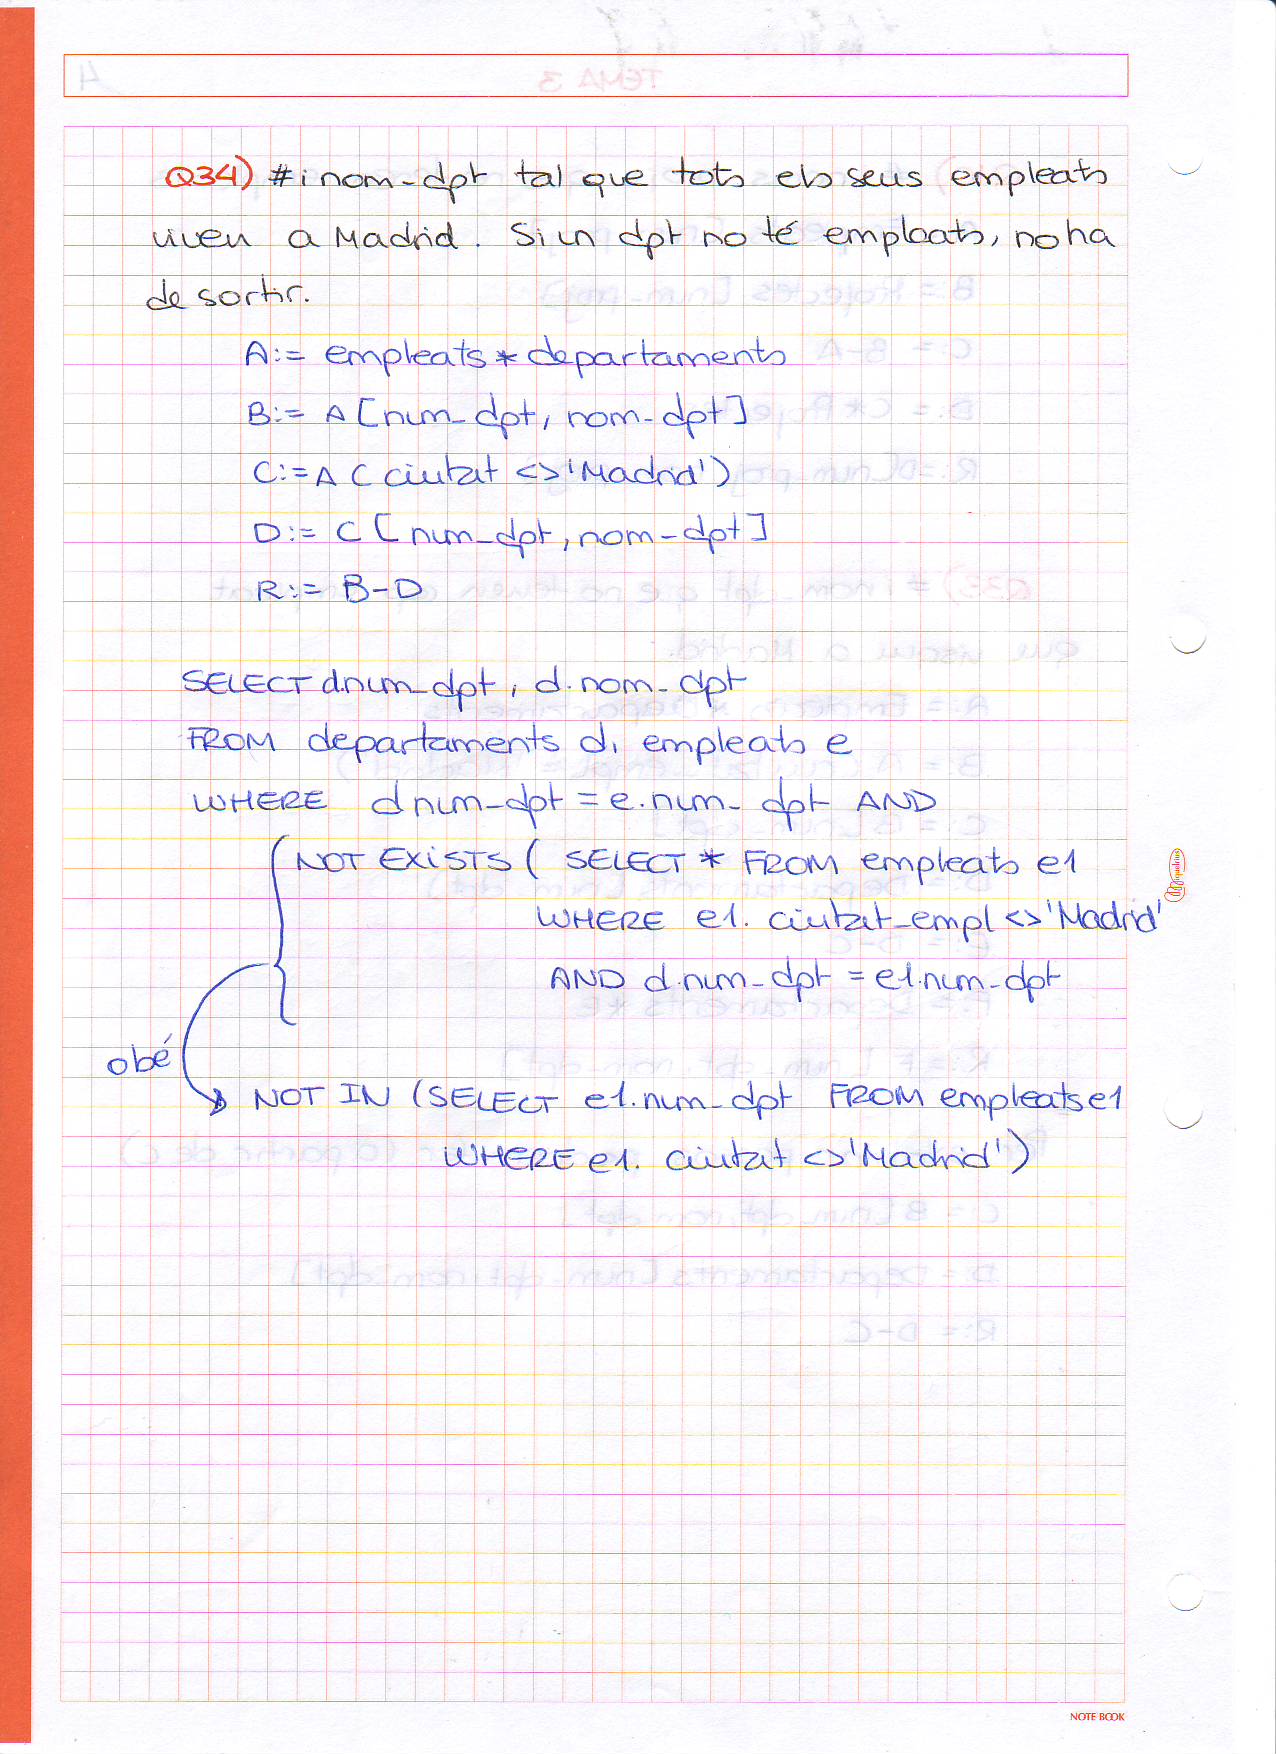 Q34) # i nom-dpt tal que tots els seus empleats
viuen a Madrid. Si un dpt no té empleats, no ha
de sortir.
A:= empleats * departaments
B:= A [num_dpt, nom-dpt]
C:= A ( ciutat <> 'Madrid')
D:= C [num_dpt, nom-dpt]
R:= B-D
SELECT d.num_dpt, d.nom-dpt
FROM departaments d, empleats e
WHERE d num-dpt = e.num_dpt AND
NOT EXISTS ( SELECT * FROM empleats e1
WHERE e1. ciutat_empl <> 'Madrid'
AND d.num_dpt = e1.num-dpt
obé
NOT IN (SELECT e1.num_dpt FROM empleats e1
WHERE e1. ciutat <> 'Madrid')
NOTE BOOK